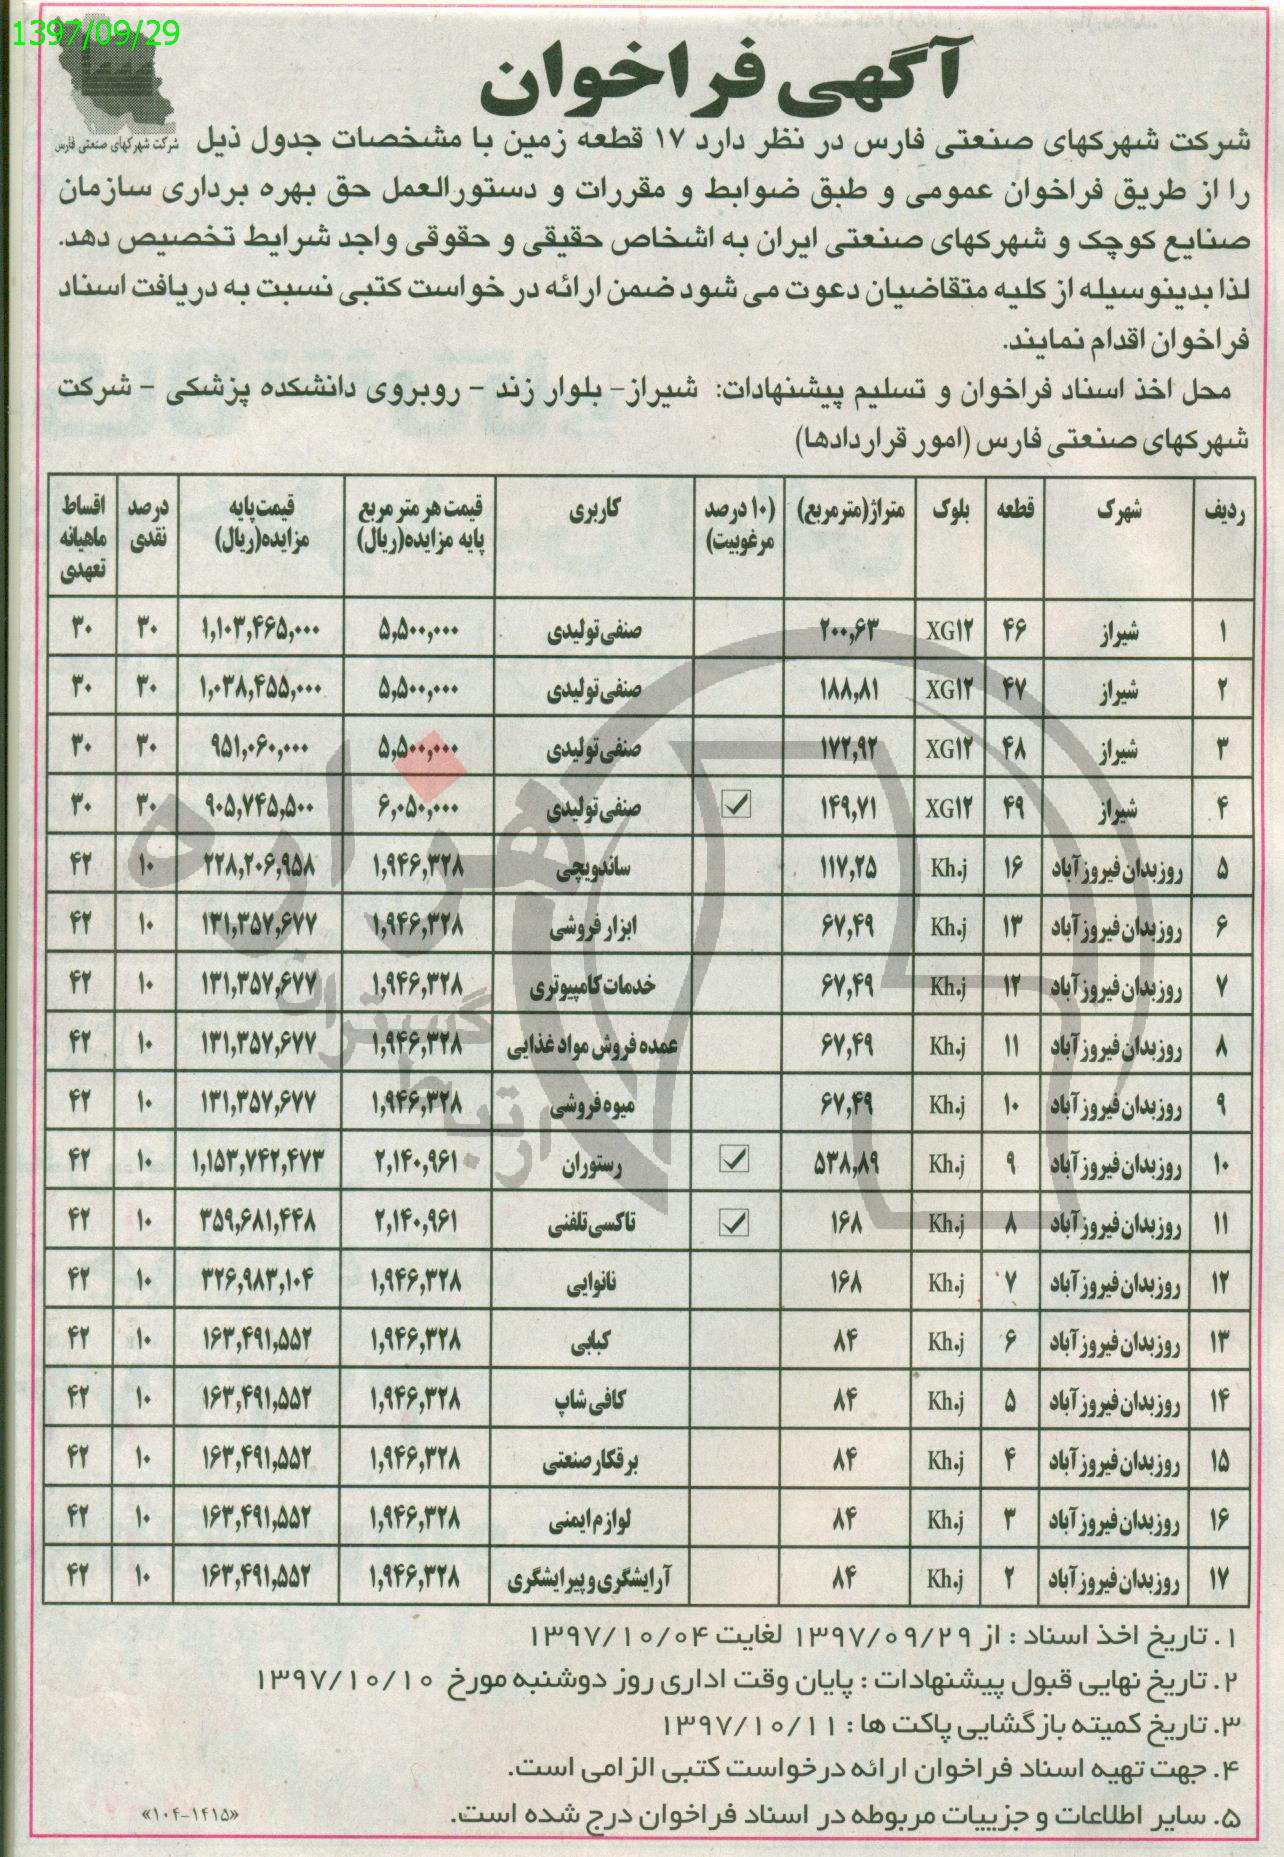 1397/09/29
شرکت شهرکهای صنعتی فارس
آگهی فراخوان
شرکت شهرکهای صنعتی فارس در نظر دارد ۱۷ قطعه زمین با مشخصات جدول ذیل
را از طریق فراخوان عمومی و طبق ضوابط و مقررات و دستورالعمل حق بهره برداری سازمان
صنایع کوچک و شهرکهای صنعتی ایران به اشخاص حقیقی و حقوقی واجد شرایط تخصیص دهد.
لذا بدینوسیله از کلیه متقاضیان دعوت می شود ضمن ارائه درخواست کتبی نسبت به دریافت اسناد
فراخوان اقدام نمایند.
محل اخذ اسناد فراخوان و تسلیم پیشنهادات: شیراز- بلوار زند - روبروی دانشکده پزشکی - شرکت
شهرکهای صنعتی فارس (امور قراردادها)
ردیف شهرک قطعه بلوک متراژ(مترمربع) (۱۰ درصد مرغوبیت) کاربری قیمت هر متر مربع پایه مزایده(ریال) قیمت پایه مزایده(ریال) درصد نقدی اقساط ماهیانه تعهدی
۱ شیراز ۴۶ XG۱۲ ۲۰۰,۶۳ صنفی تولیدی ۵,۵۰۰,۰۰۰ ۱,۱۰۳,۴۶۵,۰۰۰ ۳۰ ۳۰
۲ شیراز ۴۷ XG۱۲ ۱۸۸,۸۱ صنفی تولیدی ۵,۵۰۰,۰۰۰ ۱,۰۳۸,۴۵۵,۰۰۰ ۳۰ ۳۰
۳ شیراز ۴۸ XG۱۲ ۱۷۲,۹۲ صنفی تولیدی ۵,۵۰۰,۰۰۰ ۹۵۱,۰۶۰,۰۰۰ ۳۰ ۳۰
۴ شیراز ۴۹ XG۱۲ ۱۴۹,۷۱ ☑ صنفی تولیدی ۶,۰۵۰,۰۰۰ ۹۰۵,۷۴۵,۵۰۰ ۳۰ ۳۰
۵ روزبدان فیروزآباد ۱۶ Kh.j ۱۱۷,۲۵ ساندویچی ۱,۹۴۶,۳۲۸ ۲۲۸,۲۰۶,۹۵۸ ۱۰ ۴۲
۶ روزبدان فیروزآباد ۱۳ Kh.j ۶۷,۴۹ ابزار فروشی ۱,۹۴۶,۳۲۸ ۱۳۱,۳۵۷,۶۷۷ ۱۰ ۴۲
۷ روزبدان فیروزآباد ۱۲ Kh.j ۶۷,۴۹ خدمات کامپیوتری ۱,۹۴۶,۳۲۸ ۱۳۱,۳۵۷,۶۷۷ ۱۰ ۴۲
۸ روزبدان فیروزآباد ۱۱ Kh.j ۶۷,۴۹ عمده فروش مواد غذایی ۱,۹۴۶,۳۲۸ ۱۳۱,۳۵۷,۶۷۷ ۱۰ ۴۲
۹ روزبدان فیروزآباد ۱۰ Kh.j ۶۷,۴۹ میوه فروشی ۱,۹۴۶,۳۲۸ ۱۳۱,۳۵۷,۶۷۷ ۱۰ ۴۲
۱۰ روزبدان فیروزآباد ۹ Kh.j ۵۳۸,۸۹ ☑ رستوران ۲,۱۴۰,۹۶۱ ۱,۱۵۳,۷۴۲,۴۷۳ ۱۰ ۴۲
۱۱ روزبدان فیروزآباد ۸ Kh.j ۱۶۸ ☑ تاکسی تلفنی ۲,۱۴۰,۹۶۱ ۳۵۹,۶۸۱,۴۴۸ ۱۰ ۴۲
۱۲ روزبدان فیروزآباد ۷ Kh.j ۱۶۸ نانوایی ۱,۹۴۶,۳۲۸ ۳۲۶,۹۸۳,۱۰۴ ۱۰ ۴۲
۱۳ روزبدان فیروزآباد ۶ Kh.j ۸۴ کبابی ۱,۹۴۶,۳۲۸ ۱۶۳,۴۹۱,۵۵۲ ۱۰ ۴۲
۱۴ روزبدان فیروزآباد ۵ Kh.j ۸۴ کافی شاپ ۱,۹۴۶,۳۲۸ ۱۶۳,۴۹۱,۵۵۲ ۱۰ ۴۲
۱۵ روزبدان فیروزآباد ۴ Kh.j ۸۴ برقکار صنعتی ۱,۹۴۶,۳۲۸ ۱۶۳,۴۹۱,۵۵۲ ۱۰ ۴۲
۱۶ روزبدان فیروزآباد ۳ Kh.j ۸۴ لوازم ایمنی ۱,۹۴۶,۳۲۸ ۱۶۳,۴۹۱,۵۵۲ ۱۰ ۴۲
۱۷ روزبدان فیروزآباد ۲ Kh.j ۸۴ آرایشگری و پیرایشگری ۱,۹۴۶,۳۲۸ ۱۶۳,۴۹۱,۵۵۲ ۱۰ ۴۲
۱. تاریخ اخذ اسناد : از ۱۳۹۷/۰۹/۲۹ لغایت ۱۳۹۷/۱۰/۰۴
۲. تاریخ نهایی قبول پیشنهادات : پایان وقت اداری روز دوشنبه مورخ ۱۳۹۷/۱۰/۱۰
۳. تاریخ کمیته بازگشایی پاکت ها : ۱۳۹۷/۱۰/۱۱
۴. جهت تهیه اسناد فراخوان ارائه درخواست کتبی الزامی است.
۵. سایر اطلاعات و جزییات مربوطه در اسناد فراخوان درج شده است.
«۱۰۴-۱۴۱۵»
هزاره
ارتباط گستران